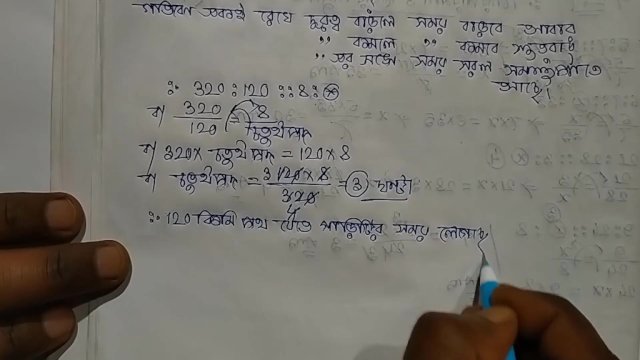 গতিবেগ একই রেখে দূরত্ব বাড়লে সময় বাড়বে আবার
" কমলে " কমবে সুতরাং
দূরত্বের সঙ্গে সময় সরল সমানুপাতে
আছে।
∴ 320 : 120 :: 8 : ⊛
বা, 320/120 = 8/চতুর্থ পদ
বা, 320 × চতুর্থ পদ = 120 × 8
বা, চতুর্থ পদ = 120 × 8/320 = 3 ঘন্টা
∴ 120 কিমি পথ যেতে গাড়িটির সময় লেগেছে